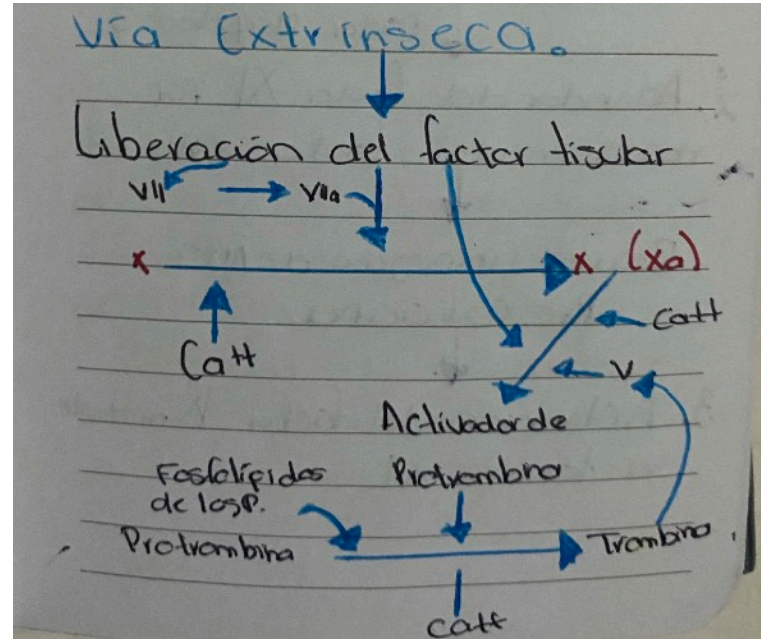 Vía Extrínseca.
Liberación del factor tisular
VII VIIa
X X (Xa)
Ca++
Ca++
V
Activador de
Protrombina
Fosfolípidos
de los P.
Protrombina
Trombina
Ca++